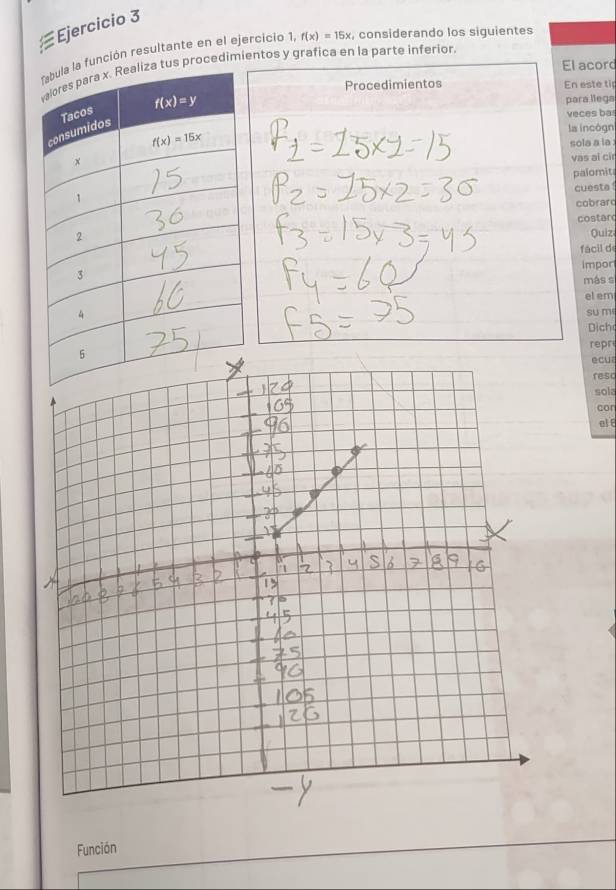 Ejercicio 3
Tabula la función resultante en el ejercicio 1, f(x) = 15x, considerando los siguientes
valores para x. Realiza tus procedimientos y grafica en la parte inferior.
Tacos
consumidos
f(x) = y
x
f(x) = 15x
1
15
2
30
3
45
4
60
5
75
Procedimientos
f1 = 15x1 = 15
f2 = 15x2 = 30
f3 = 15x3 = 45
f4 = 60
f5 = 75
120
105
90
75
60
45
30
15
X
5 4 3 2
1 2 3 4 5 6 7 8 9 10
15
45
60
75
90
105
120
-y
Función
El acord
En este tip
para llega
veces bas
la incógn
sola a la
vas al cin
palomita
cuesta
cobraro
costaro
Quiz
fácil de
impor
más s
el em
su me
Dicho
repre
ecua
reso
sola
con